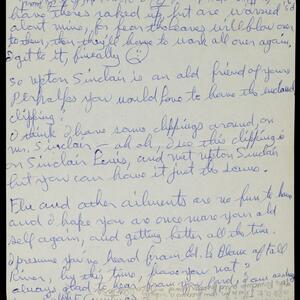 have theirs raked up, but are worried
about mine, for fear the leaves will blow over
to them, then they'll have to work all over again.
I got to it, finally
So Upton Sinclair is an old friend of yours
Perhalps you would love to have the enclosed
clipping?
I think I have some clippings around on
Mr. Sinclair – ah ah, I see this clipping is
on Sinclair Lewis, and not Upton Sinclair
but you can have it just the same.
Flu and other ailments are no fun to have
and I hope you are once more your old
self again, and getting better all the time.
I presume you've heard from Ed. Le Blanc of Fall
River, by this time, have you not?
Always glad to hear from you